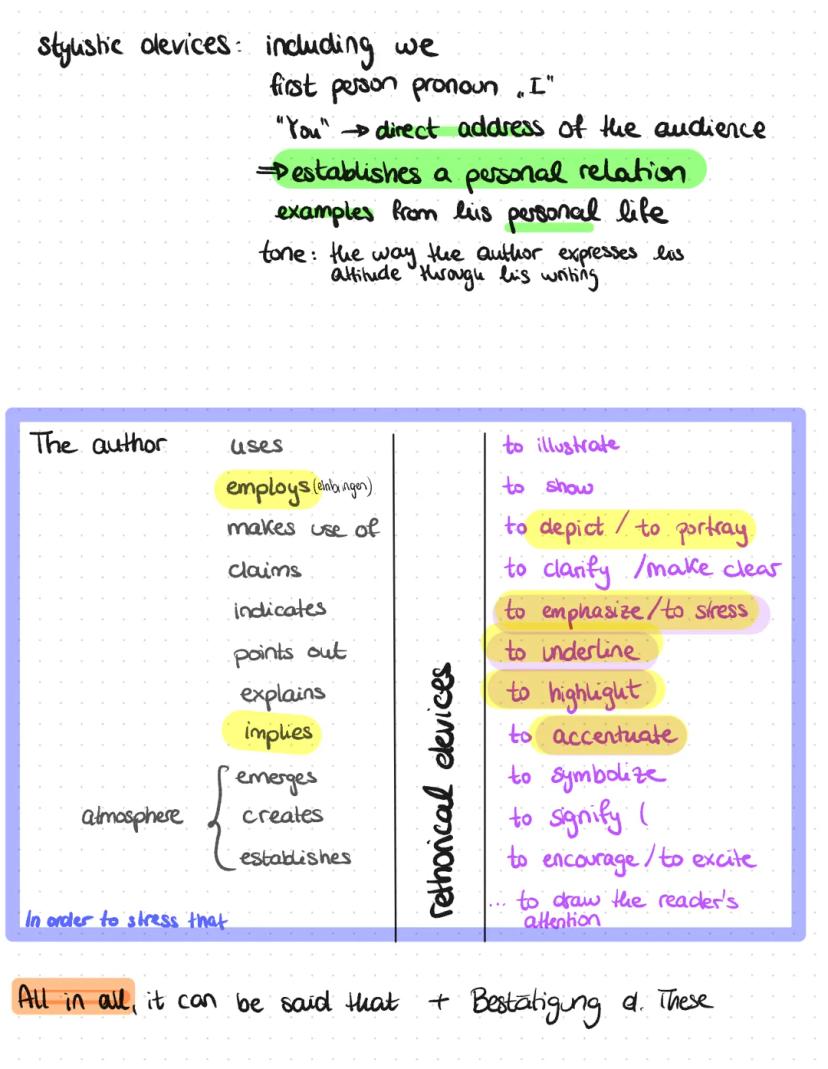 stylistic devices: including we
first person pronoun „I"
"You" → direct address of the audience
⇒ establishes a personal relation
examples from his personal life
tone: the way the author expresses his
attitude through his writing
The author uses to illustrate
employs (einbringen) to show
makes use of to depict / to portray
claims to clarify / make clear
indicates to emphasize / to stress
points out to underline
explains to highlight
implies to accentuate
emerges to symbolize
atmosphere { creates to signify (
establishes to encourage / to excite
rethorical devices
... to draw the reader's
attention
In order to stress that
All in all, it can be said that + Bestätigung d. These